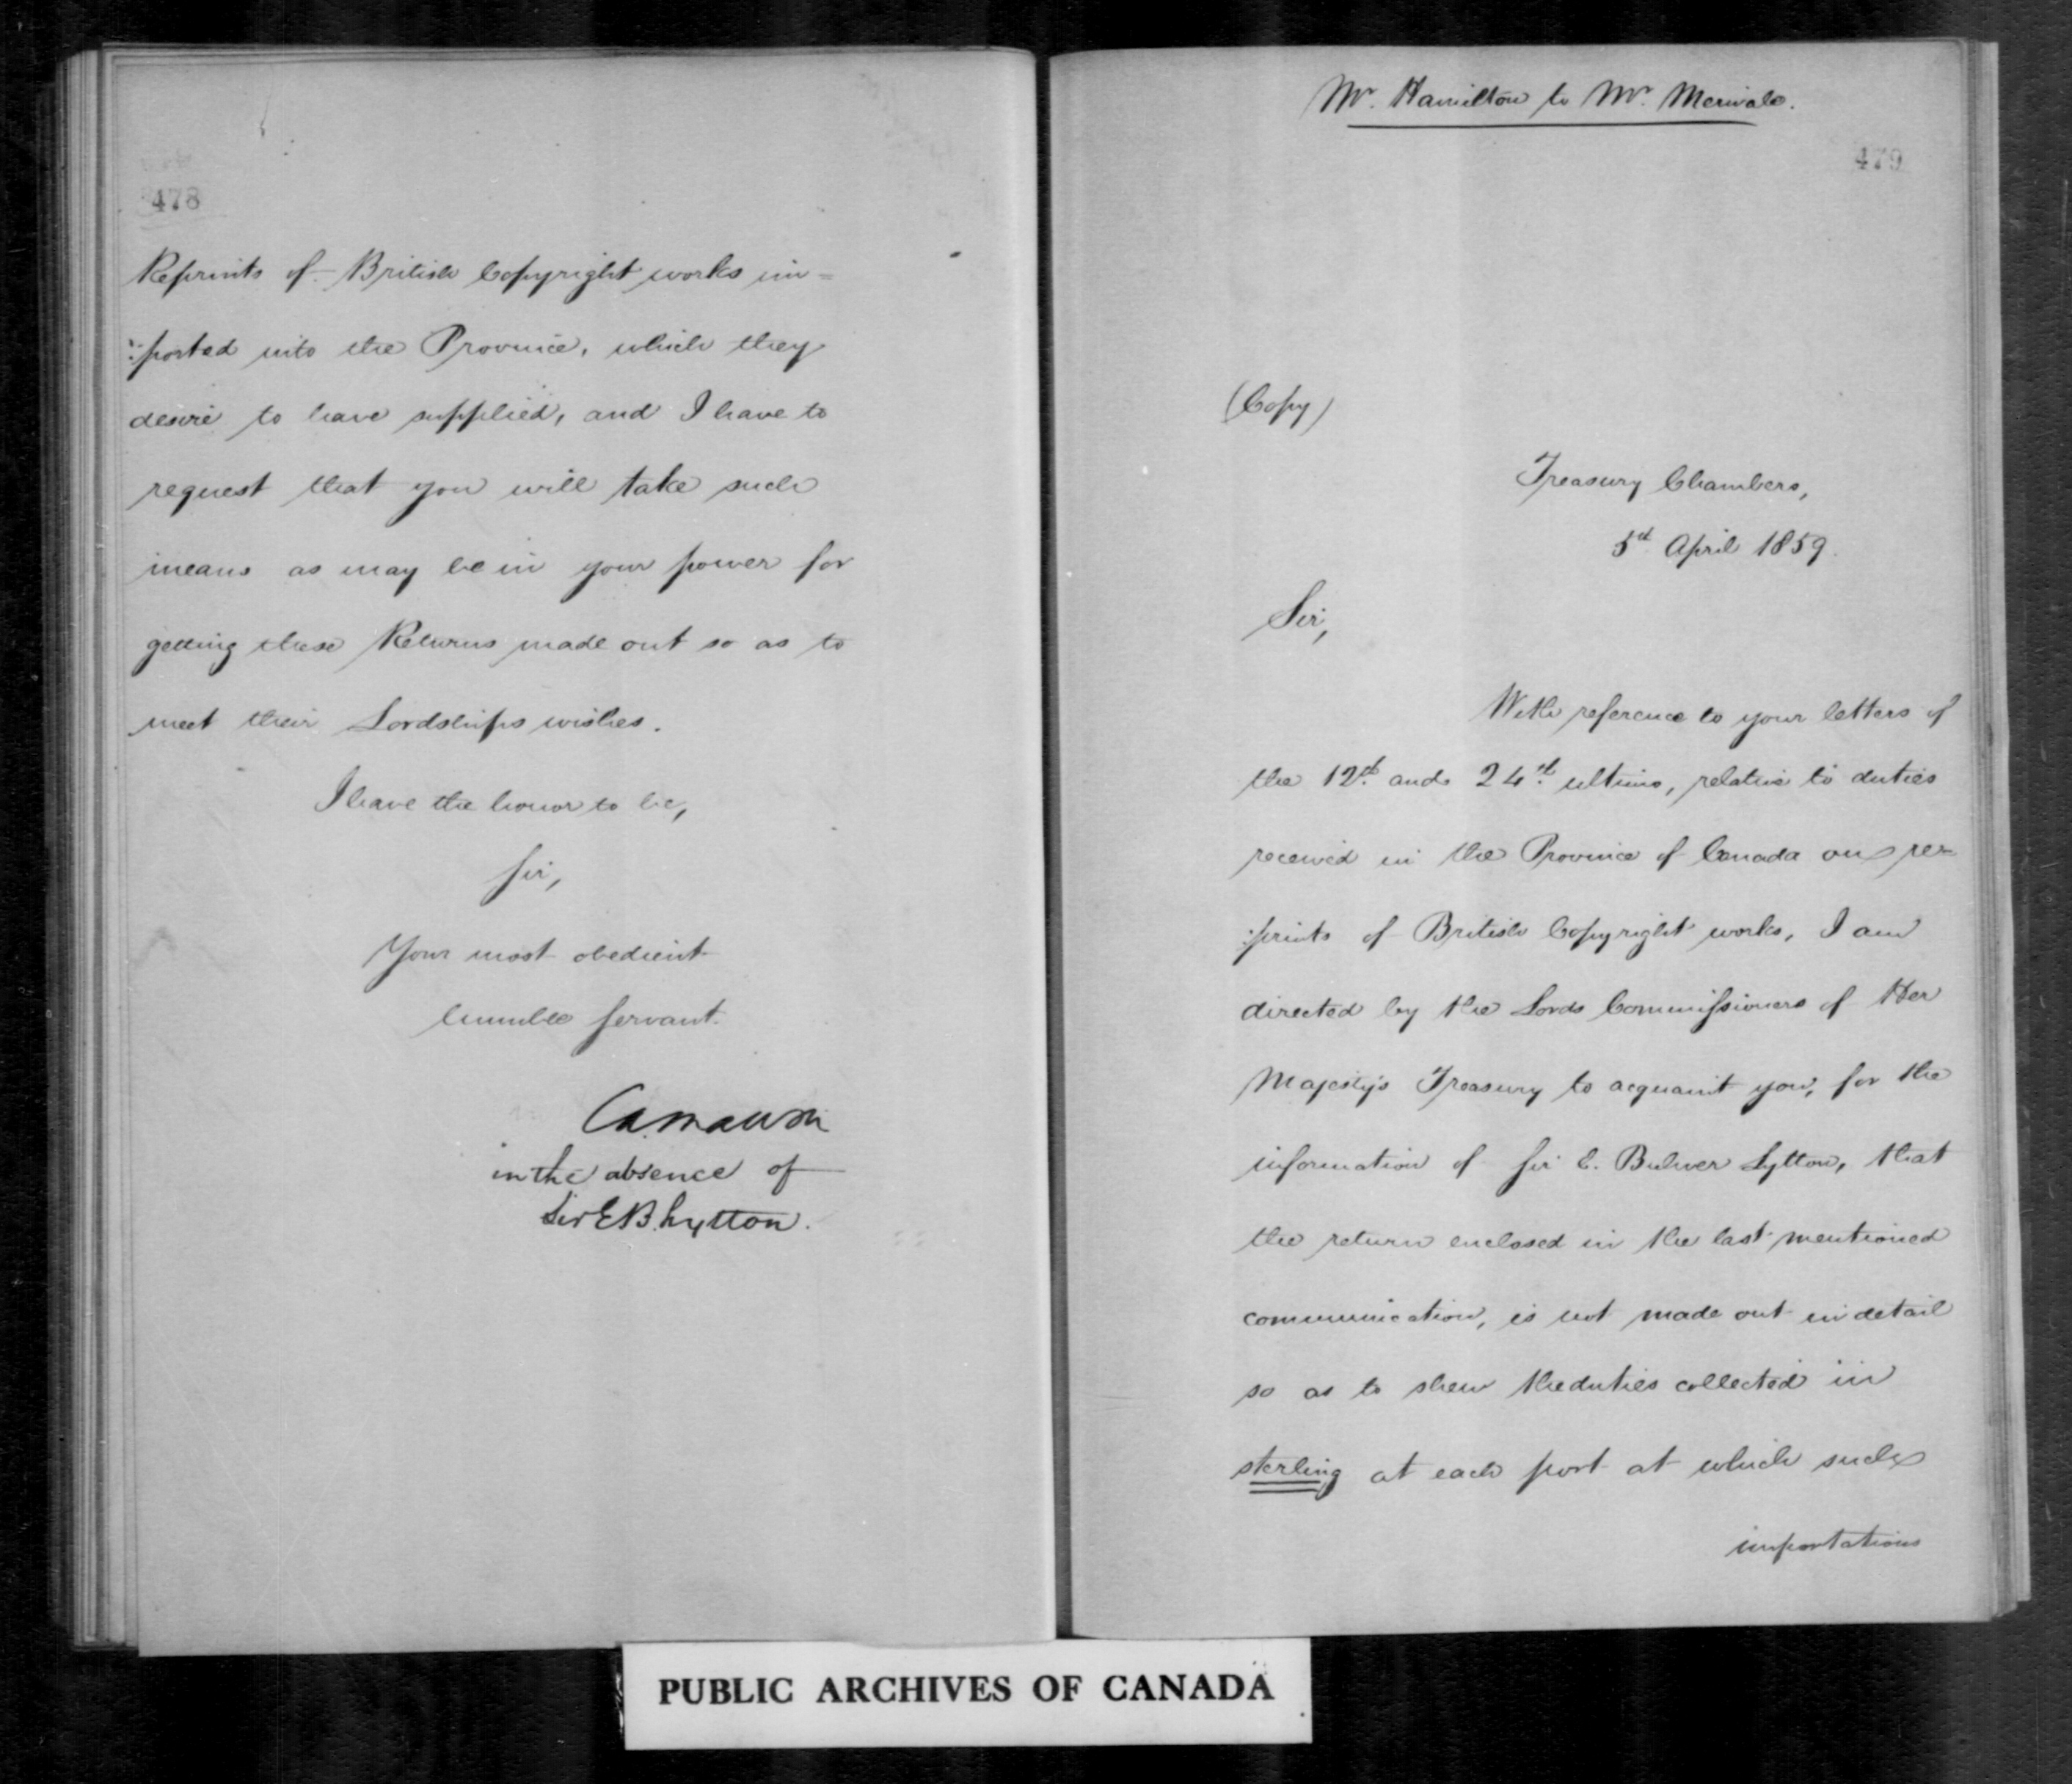 478
Reprints of British Copyright works im=
:ported into the Province, which they
desire to have supplied, and I have to
request that you will take such
means as may be in your power for
getting these Returns made out so as to
meet their Lordships wishes.
I have the honor to be,
Sir,
Your most obedient
humble servant.
in the absence of
Sir E B. Lytton.
Mr. Hamilton to Mr. Merivale.
479
(Copy)
Treasury Chambers,
5th April 1859.
Sir,
With reference to your letters of
the 12th and 24th ultimo, relative to duties
received in the Province of Canada on re=
:prints of British Copyright works, I am
directed by the Lords Commissioners of Her
Majesty's Treasury to acquaint you, for the
information of Sir E. Bulwer Lytton, that
the return enclosed in the last mentioned
communication, is not made out in detail
so as to shew the duties collected in
sterling at each port at which such
importations
PUBLIC ARCHIVES OF CANADA